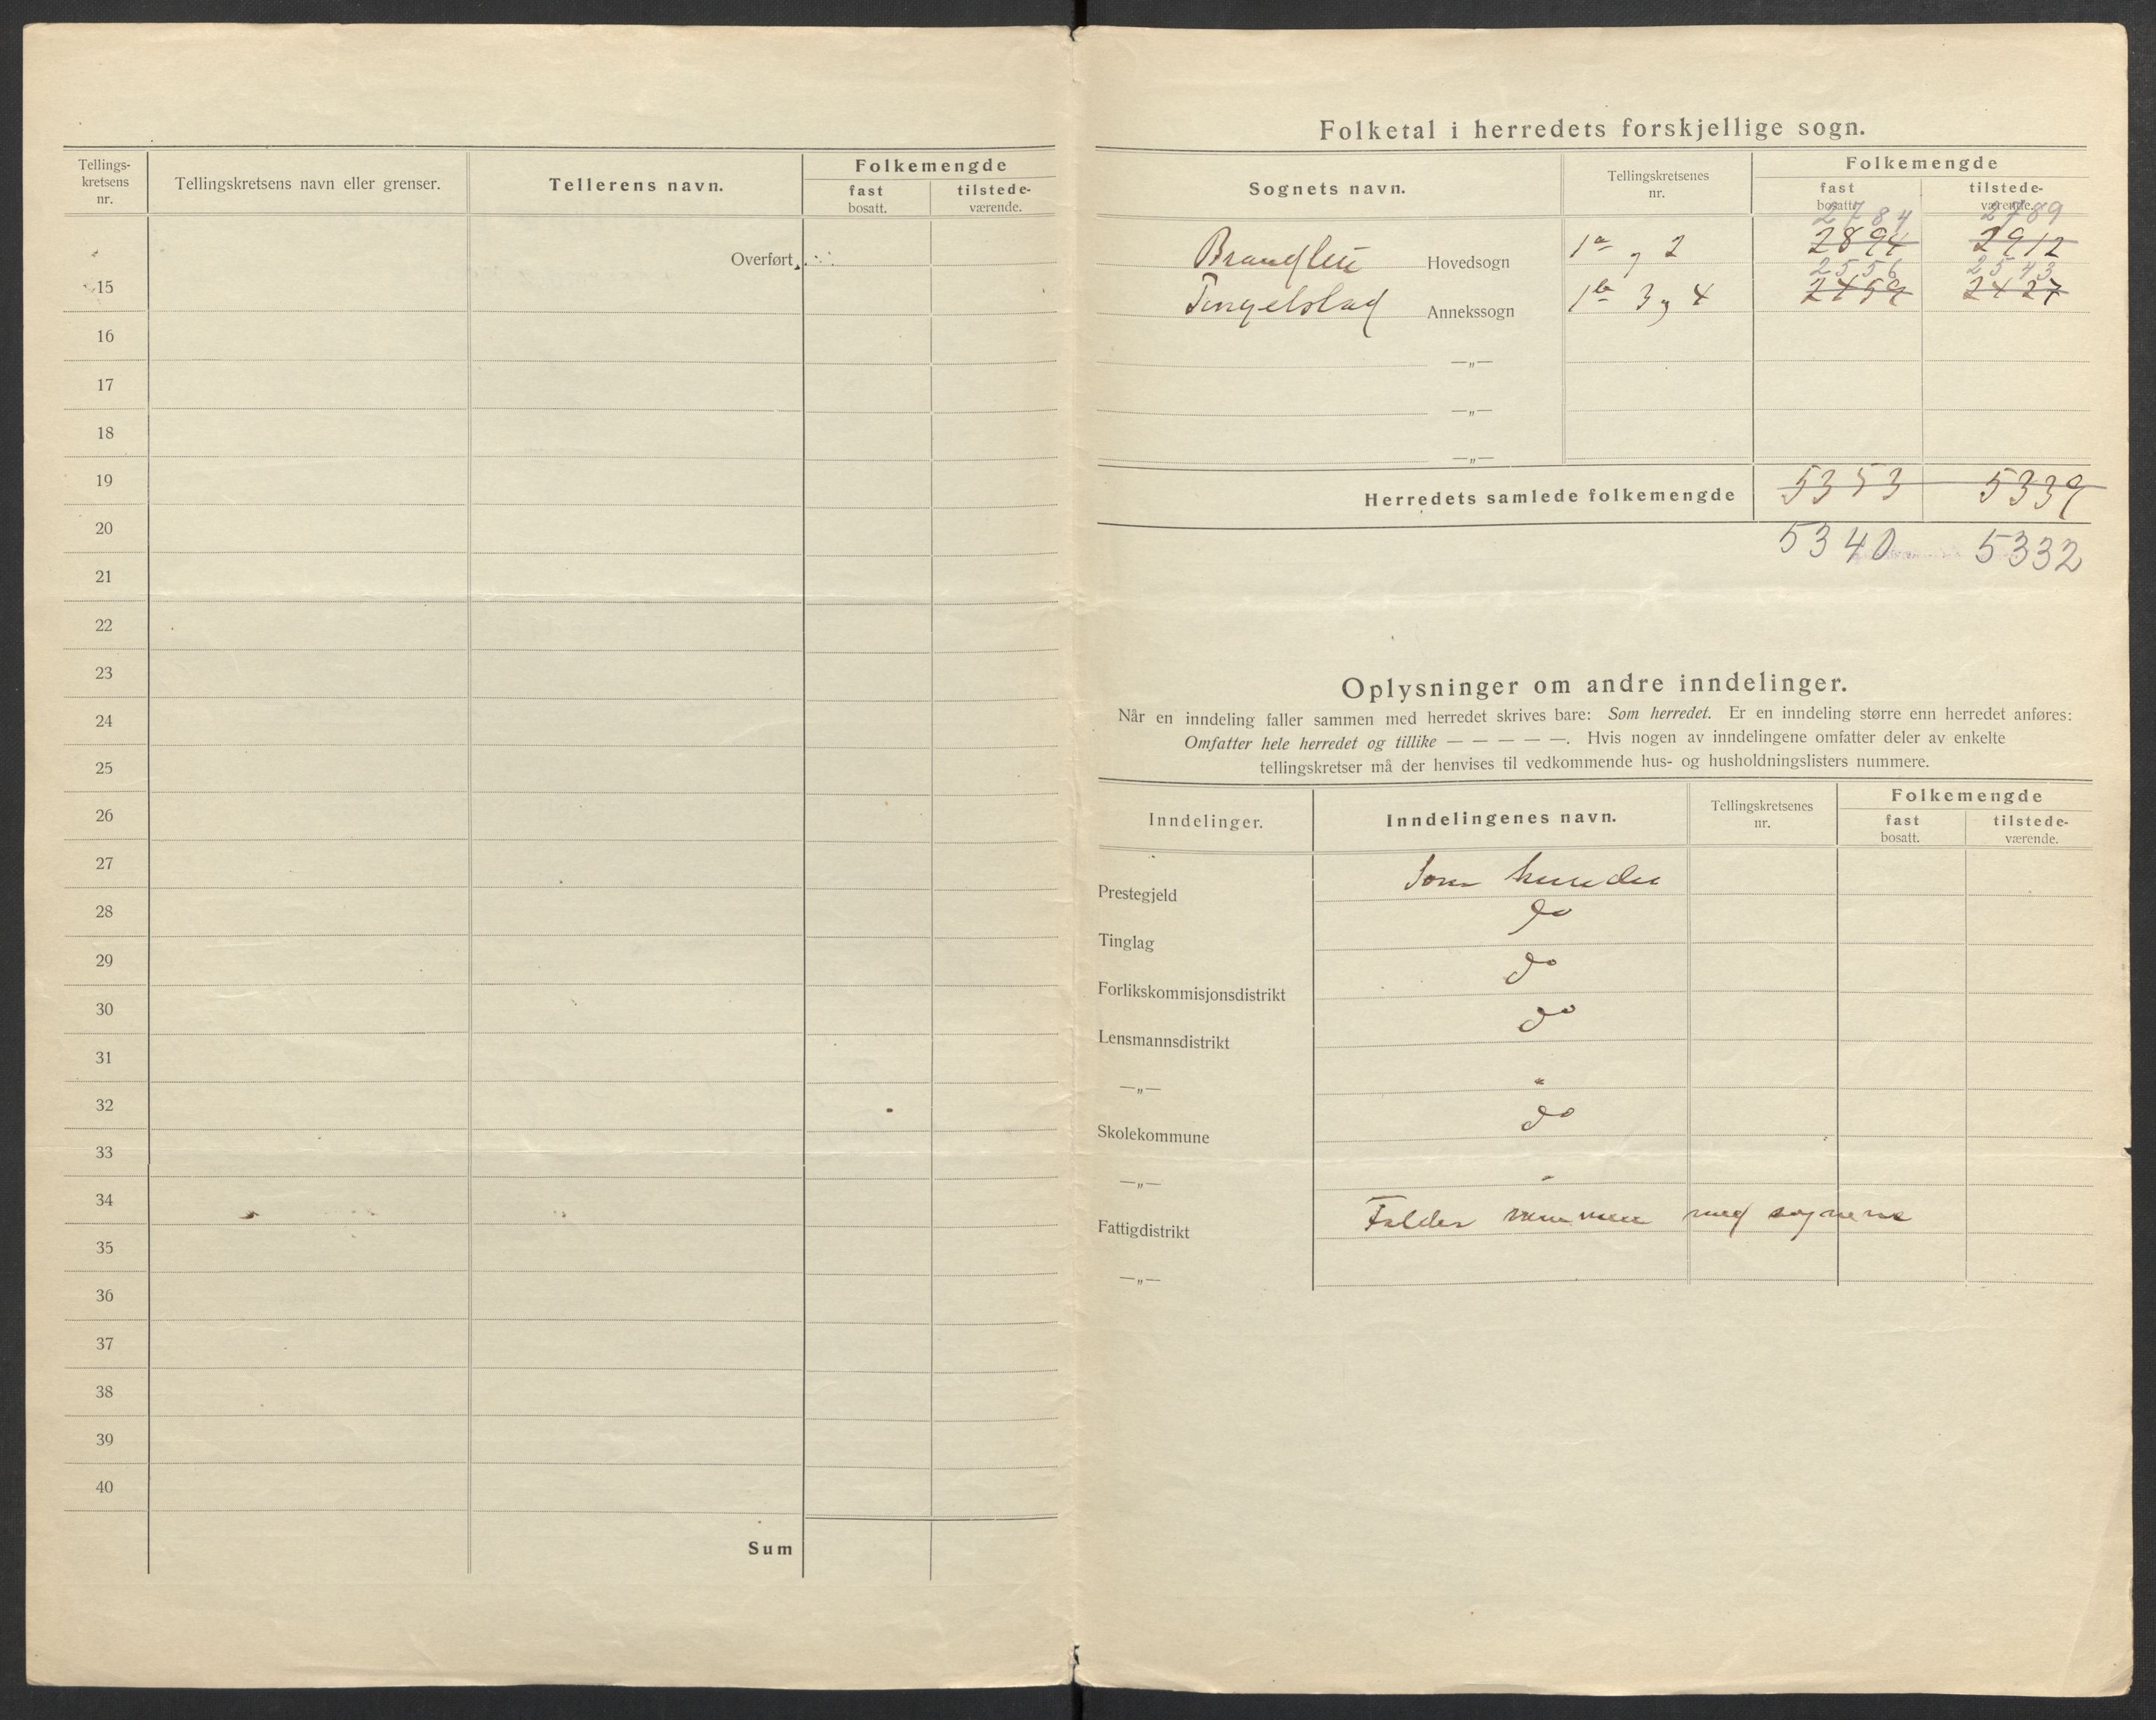 Tellings-
kretsens
nr.
Tellingskretsens navn eller grenser.
Tellerens navn.
Folkemengde
fast
bosatt.
tilstede-
værende.
Overført
15
16
17
18
19
20
21
22
23
24
25
26
27
28
29
30
31
32
33
34
35
36
37
38
39
40
Sum
Folketal i herredets forskjellige sogn.
Sognets navn.
Tellingskretsenes
nr.
Folkemengde
fast
bosatt.
tilstede-
værende.
2784 2789
Brandbu Hovedsogn 1a og 2 2894 2912
2556 2543
Tingelstad Annekssogn 1b 3 og 4 2459 2427
—„—
—„—
—„—
Herredets samlede folkemengde 5353 5339
5340 5332
Oplysninger om andre inndelinger.
Når en inndeling faller sammen med herredet skrives bare: Som herredet. Er en inndeling større enn herredet anføres:
Omfatter hele herredet og tillike — — — — —. Hvis nogen av inndelingene omfatter deler av enkelte
tellingskretser må der henvises til vedkommende hus- og husholdningslisters nummere.
Inndelinger.
Inndelingenes navn.
Tellingskretsenes
nr.
Folkemengde
fast
bosatt.
tilstede-
værende.
Prestegjeld Som herredet
Tinglag do
Forlikskommisjonsdistrikt do
Lensmannsdistrikt do
—„— "
Skolekommune do
—„— "
Fattigdistrikt Falder sammen med sognene
—„—